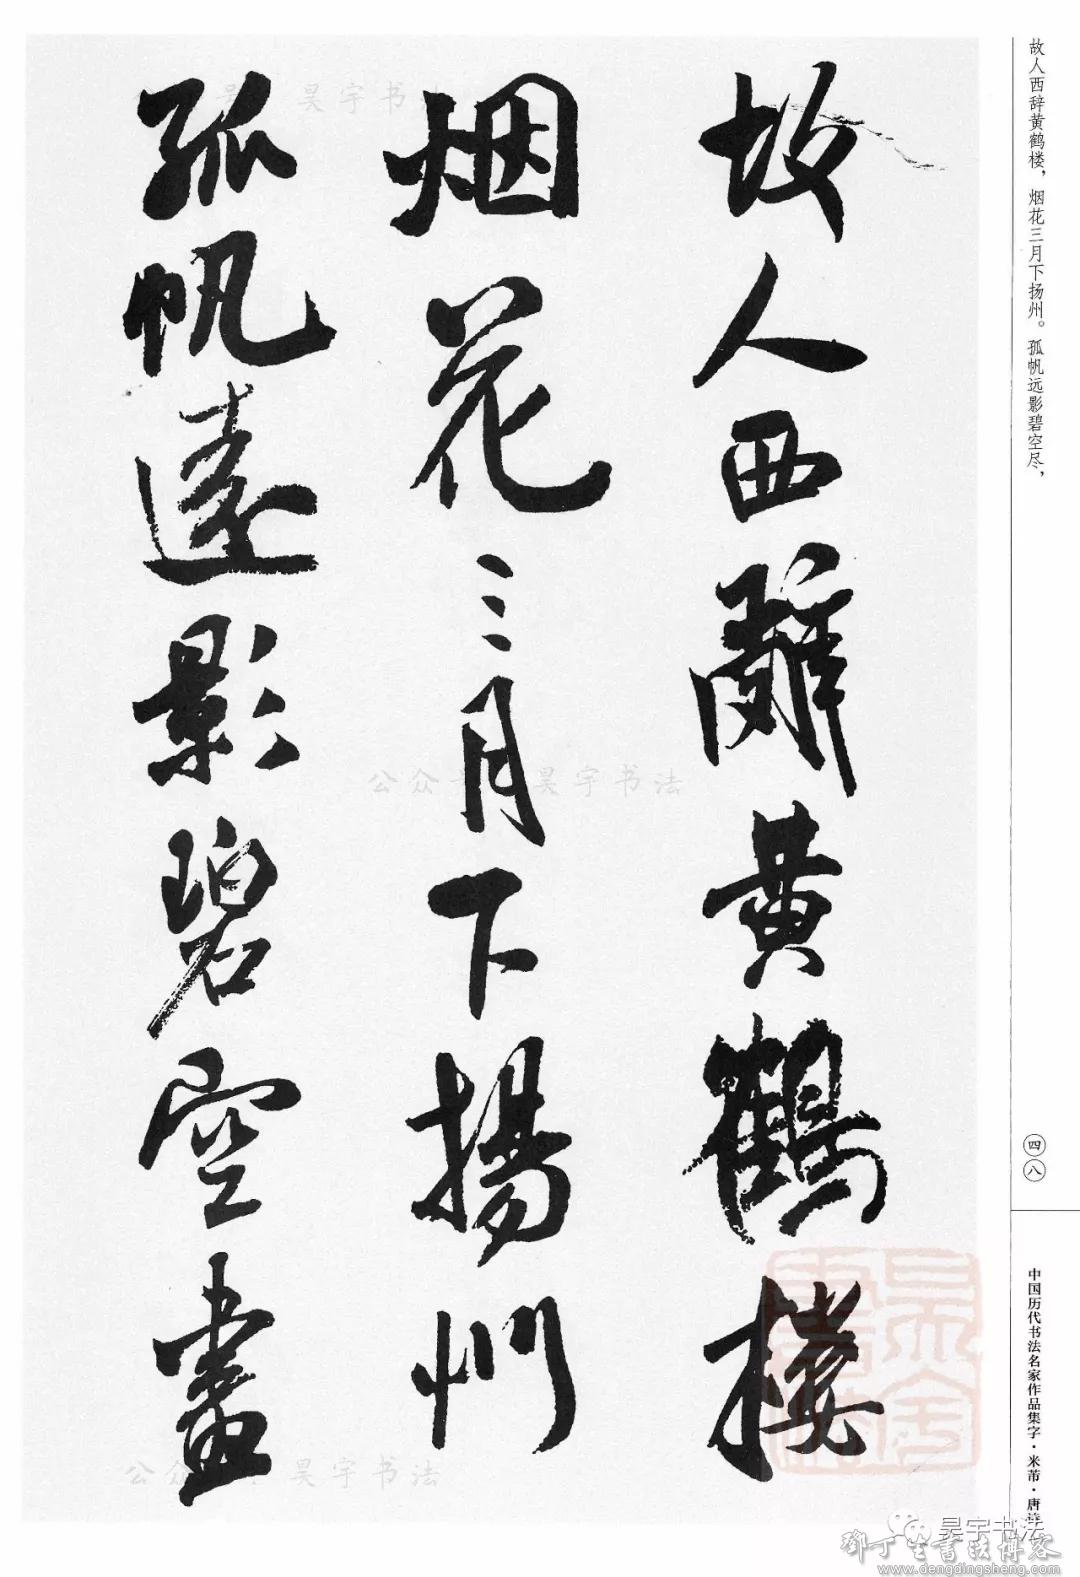 故人西辭黄鶴樓
烟花三月下揚州
孤帆遠影碧空盡
故人西辞黄鹤楼，烟花三月下扬州。孤帆远影碧空尽，
四八
中国历代书法名家作品集字·米芾·唐诗
公众号 昊宇书法
公众号 昊宇书法
昊宇书法
昊宇书法
鄧丁生書法博客
www.dengdingsheng.com